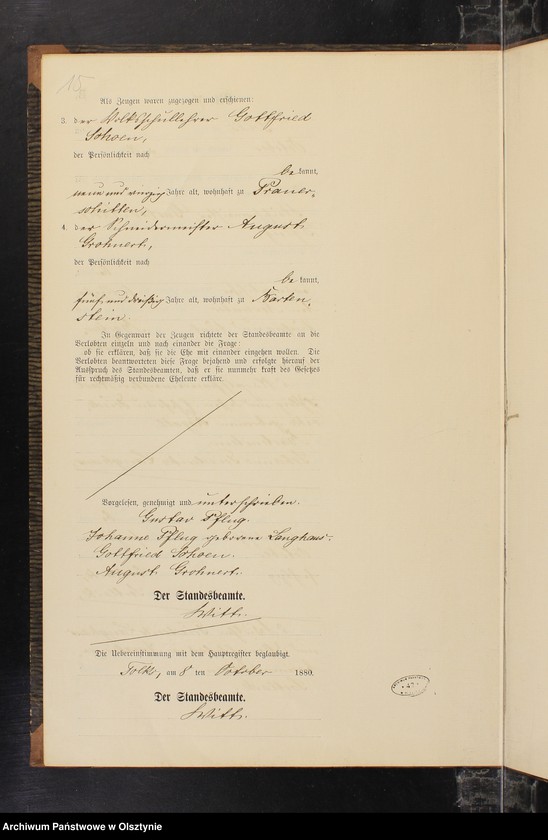 15
Als Zeugen waren zugezogen und erschienen:
3. der Volksschullehrer Gottfried
Schoen,
der Persönlichkeit nach
be kannt,
neun und vierzig Jahre alt, wohnhaft zu
schütten,
4. der Schneidermeister August
Grohnert,
der Persönlichkeit nach
be kannt,
fünf und dreißig Jahre alt, wohnhaft zu Barten-
stein.
In Gegenwart der Zeugen richtete der Standesbeamte an die
Verlobten einzeln und nach einander die Frage:
ob sie erklären, daß sie die Ehe mit einander eingehen wollen. Die
Verlobten beantworteten diese Frage bejahend und erfolgte hierauf der
Ausspruch des Standesbeamten, daß er sie nunmehr kraft des Gesetzes
für rechtmäßig verbundene Eheleute erkläre.
Vorgelesen, genehmigt und unterschrieben.
Gustav Pflug.
Johanne Pflug geborene Langhans.
Gottfried Schoen.
August Grohnert.
Der Standesbeamte.
Witt.
Die Uebereinstimmung mit dem Hauptregister beglaubigt.
Tolks, am 8 ten October 1880.
Der Standesbeamte.
Witt.
Archiwum Państwowe w Olsztynie